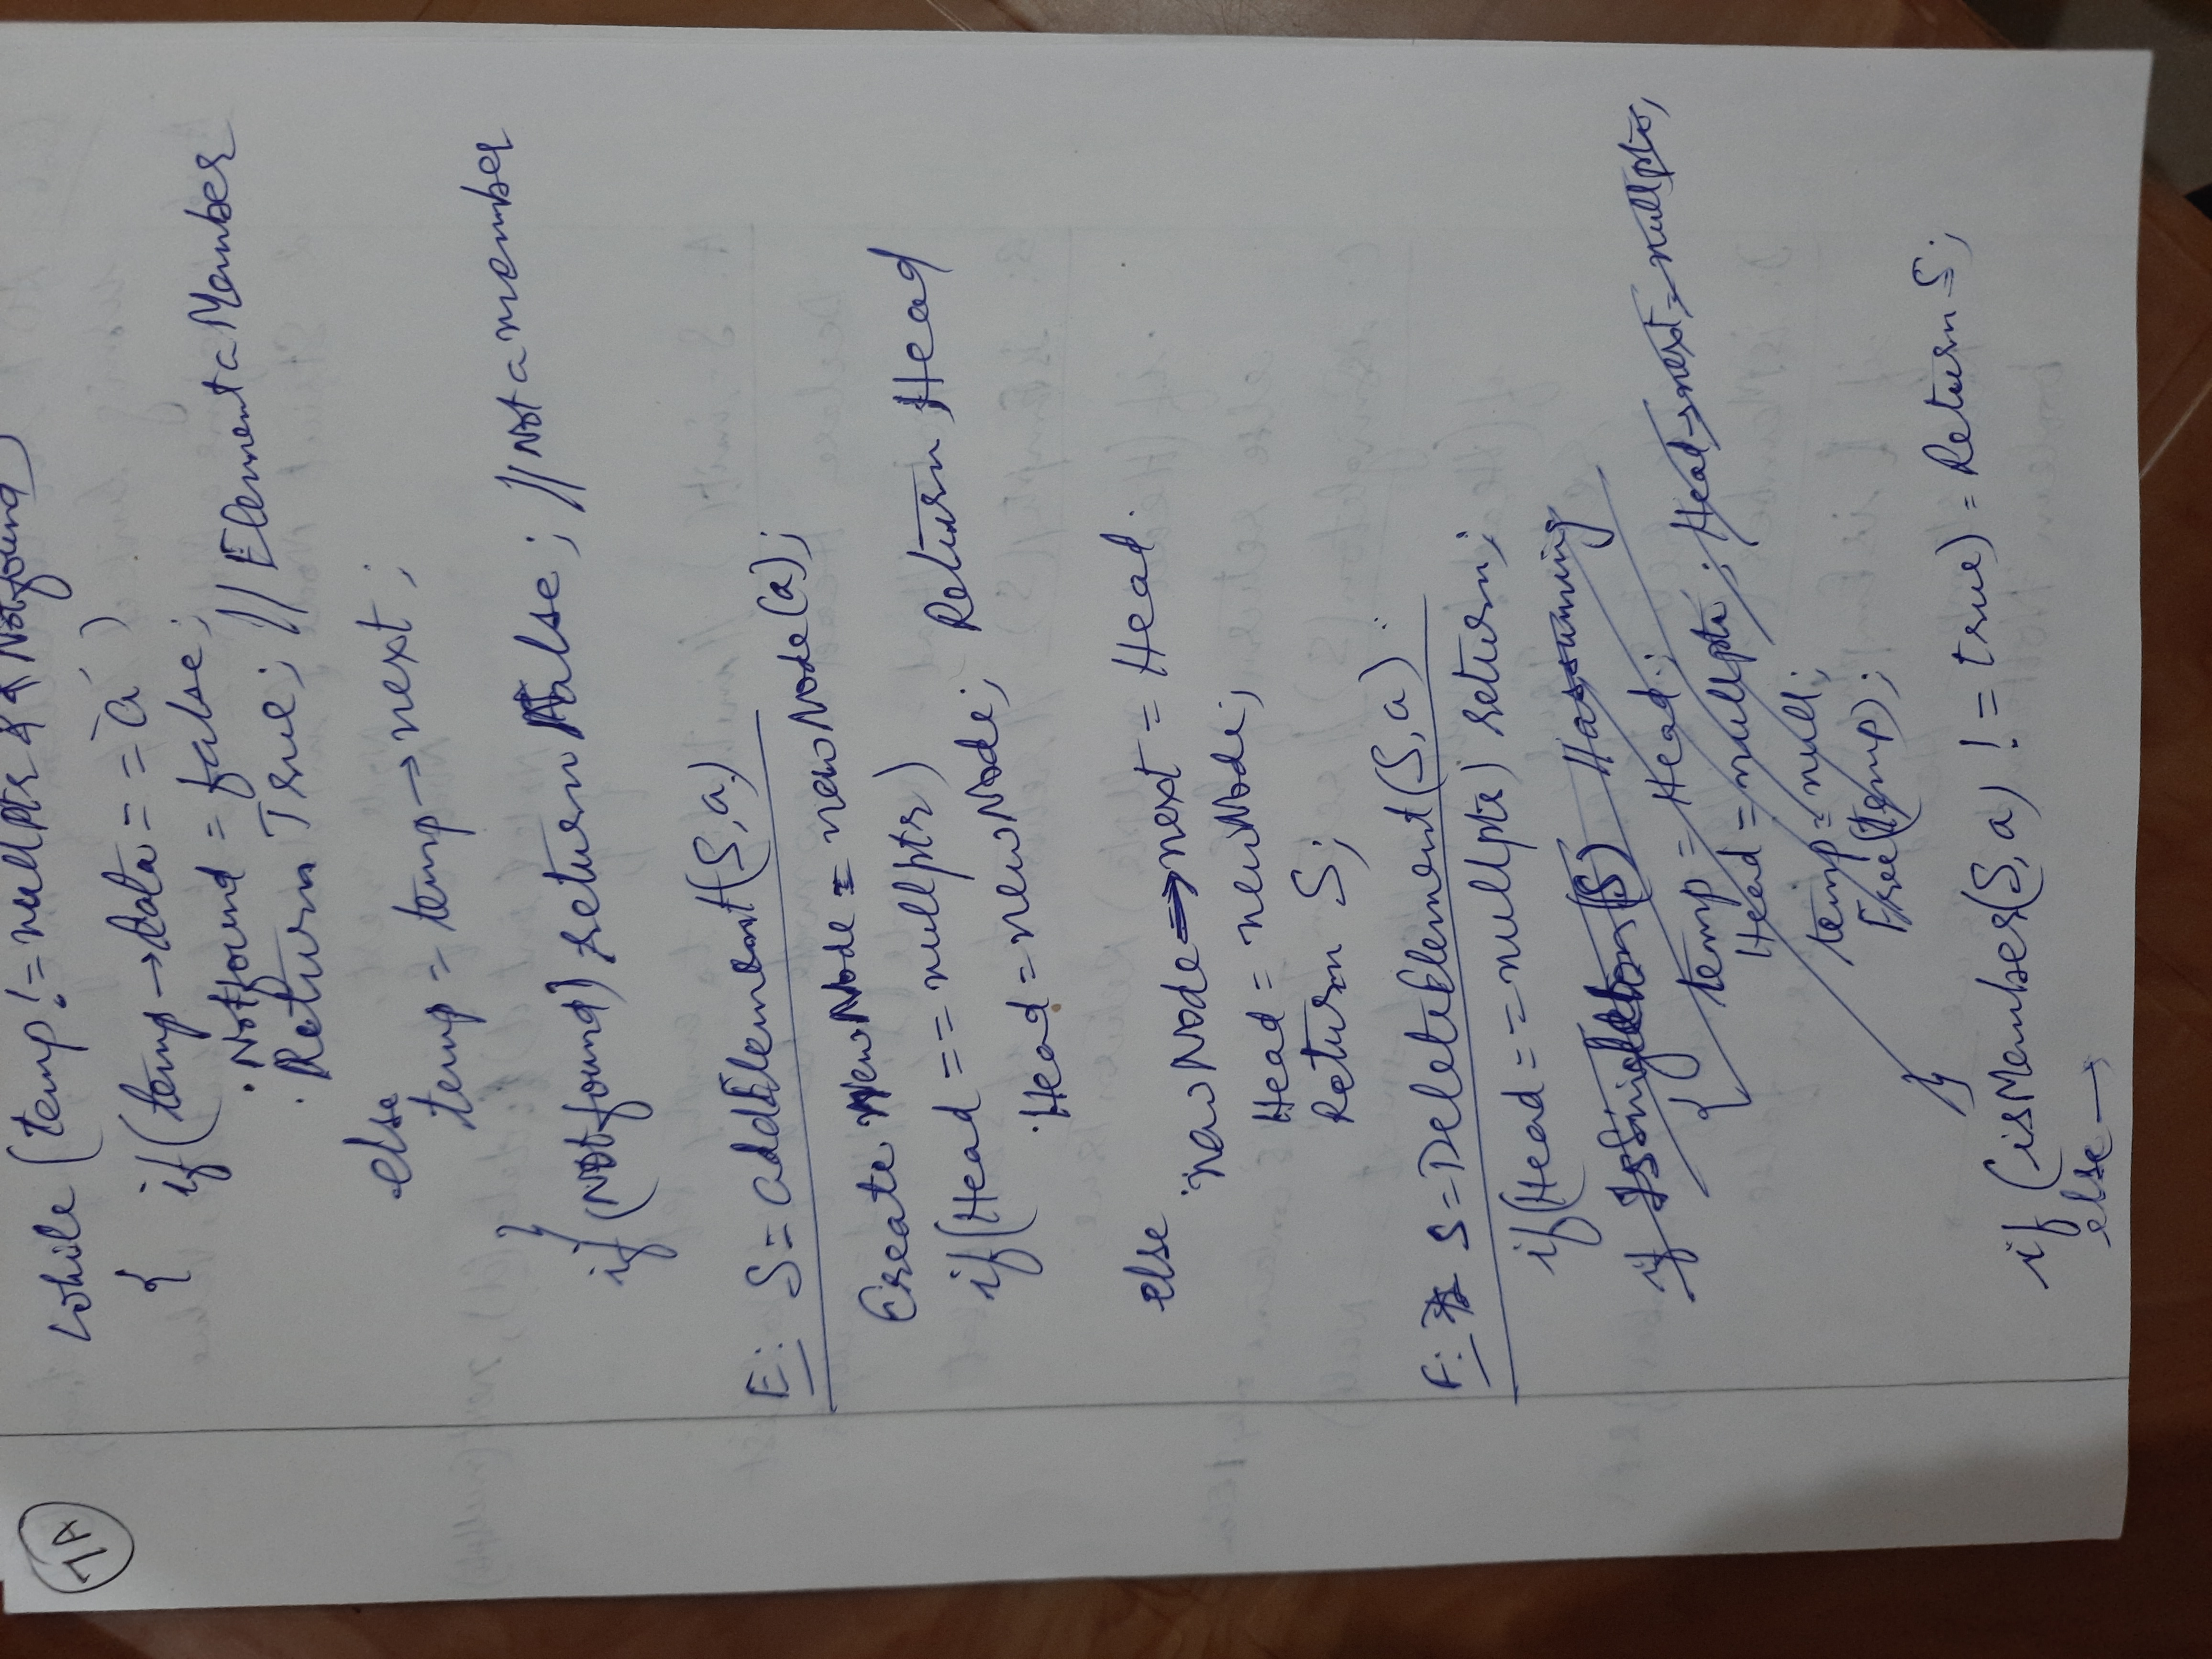 7A
while (temp != nullptr && Notfound)
{ if (temp → data == `a´ )
. Notfound = false;
. Return True; // Element a Member
else
temp = temp → next ;
}
if (Notfound) return False; // Not a member
E: S = addElement(S, a)
Create NewNode = newNode(a);
if (Head == nullptr)
. Head = newNode; Return Head
else
. newNode → next = Head.
Head = newNode;
Return S;
F: S = DeleteElement(S, a)
if (Head == nullptr) return;
if IsSingleton(S) // assuming
{ temp = Head.;
Head = nullptr ; Head → next = nullptr;
temp = null;
Free(temp);
}
if (isMember(S, a) != true) = Return S;
else →